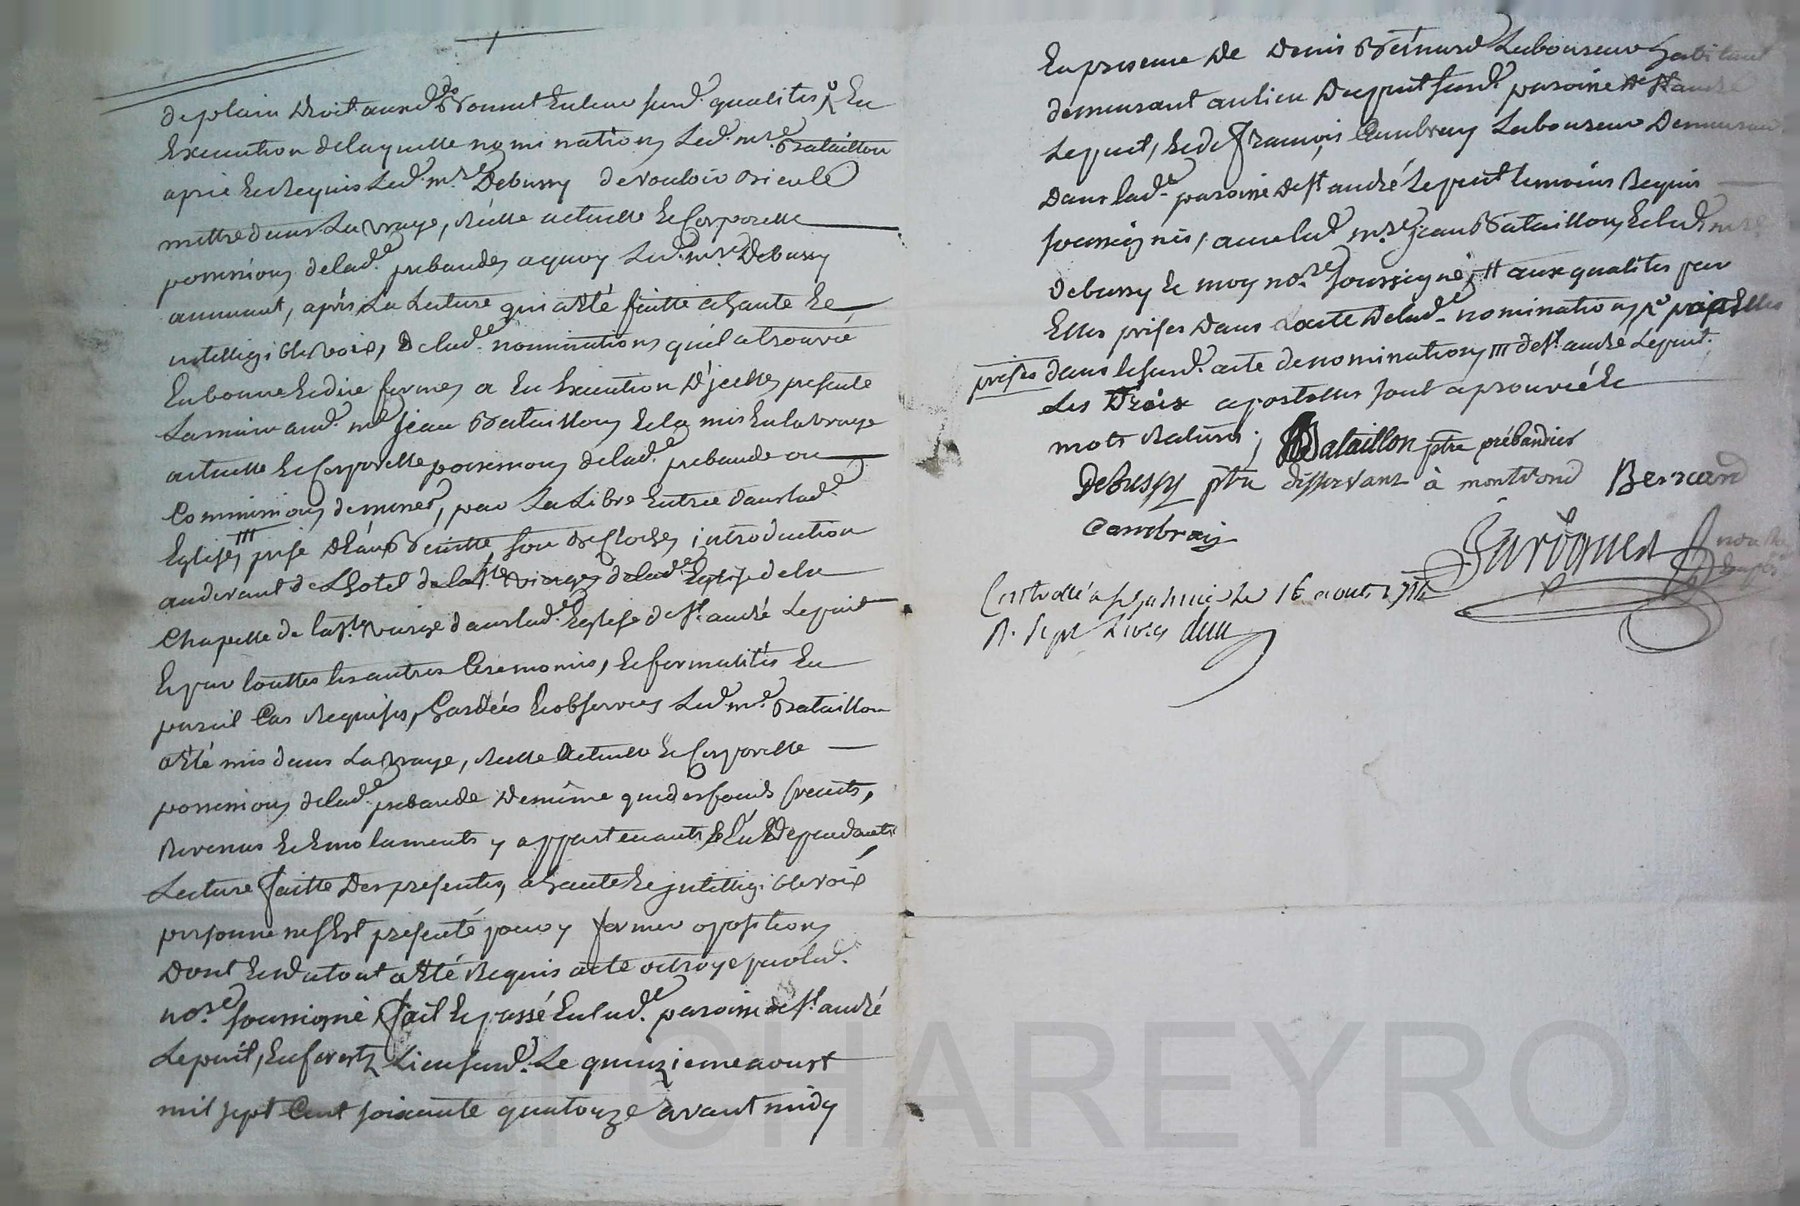 de plain Droit aux d.ts Bonnet En leur susd. qualités & En
Execution de laquelle nomination, Led. mre. Bataillon
a prié Et Requis Led. mre. Debussy de vouloir
mettre dans La vraye, Réelle actuelle Et Corporelle
possession de lad.e prebande, a quoy Led. mre. Debussy
, après La Lecture qui a Eté faitte a haute Et
intelligible voix, de lad.e nomination qu'il a trouvée
En bonne Et due forme, a En Execution D'jcelle, presenté
La main aud. mre jean Bataillon Et La mis En la vraye
actuelle Et Corporelle possession de lad.e prebande ou
Commission de messes, par La Libre Entrée dans lad.e
Eglise, prise D'Eau Benitte, son de Cloche, introduction
au devant de L'hotel de la Ste. vierge de lad.e Eglise de la
Chapelle de la Ste. vierge dans lad.e Eglise de St. andré Le puit
Et par touttes les autres Cérémonies, Et formalités En
pareil Cas Requises, Gardées Et observées Led. mre. Bataillon
a Eté mis dans La vraye, Réelle Actuelle Et Corporelle
possession de lad.e prebande De même que des fonds fruits,
Revenus Et Emoluments y appartenants Et En Dependants
Lecture faitte Des presentes, a haute Et jntelligible voix
personne ne s'Est presenté pour y former oposition
Dont Et du tout a Eté Requis acte octroyé par led.
nore. soussigné fait Et passé En lad.e paroisse de St. andré
Le puit, En Forest, Lieu susd. Le quinzieme aoust
mil sept Cent soixante quatorze avant midy
En presence De Denis Bernard Laboureur habitant
demeurant au lieu susd. paroisse de St. andré
Le puit, Et de François Cambray Laboureur Demeurant
Dans lad.e paroisse de St. andré Le puit temoins Requis
soussignés, avec led. mre. jean Bataillon Et led. mre.
Debussy Et moy nore. soussigné, # aux qualités par
Elles prises Dans L'acte De lad.e nomination,
prises dans le susd. acte de nomination /// de St. andré Le puit.
Les Trois apostilles sont aprouvée Et
mots Raturés; Bataillon ptre prébandier
Debussy ptre desservant à montrond Bernard
Cambray
Controllé a St Galmier Le 16 aout 1774
R. sept Livres